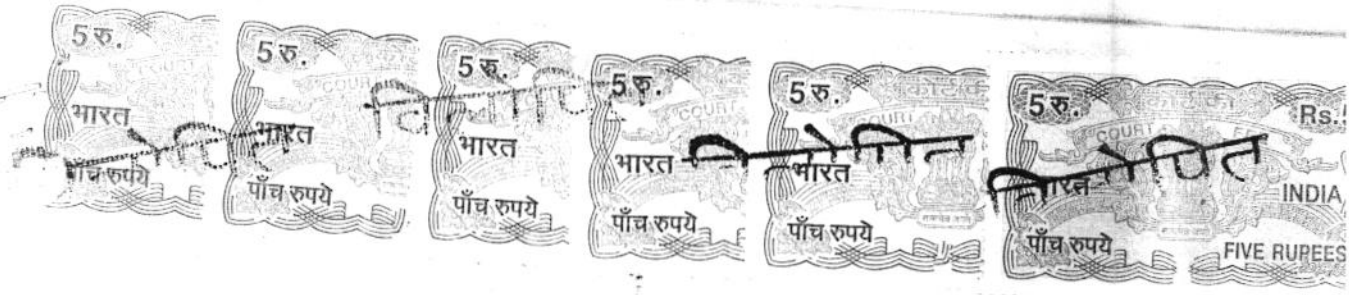 5 रु.
भारत
पाँच रुपये
5 रु.
भारत
पाँच रुपये
5 रु.
COURT
भारत
पाँच रुपये
5 रु.
COURT
भारत
पाँच रुपये
5 रु.
कोर्ट फी
COURT
भारत
पाँच रुपये
5 रु. कोर्ट फी Rs.
COURT
भारत INDIA
पाँच रुपये FIVE RUPEES
विलोपित
विलोपित